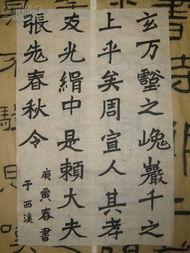 玄万壑之嵬巖千之
上乎矣周宣人其孝
友光緝中是賴大夫
張先春秋令
庚寅春書
于西溪